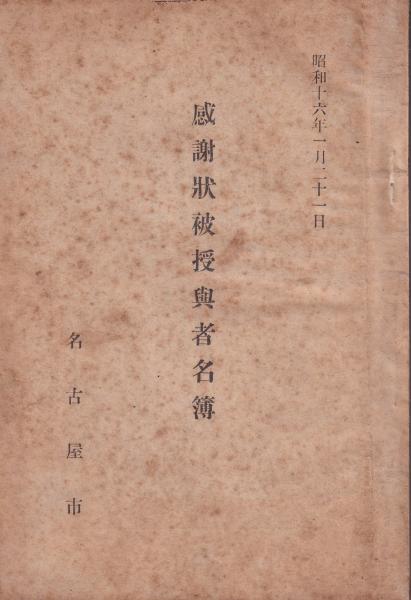 昭和十六年一月二十一日
感謝狀被授與者名簿
名古屋市